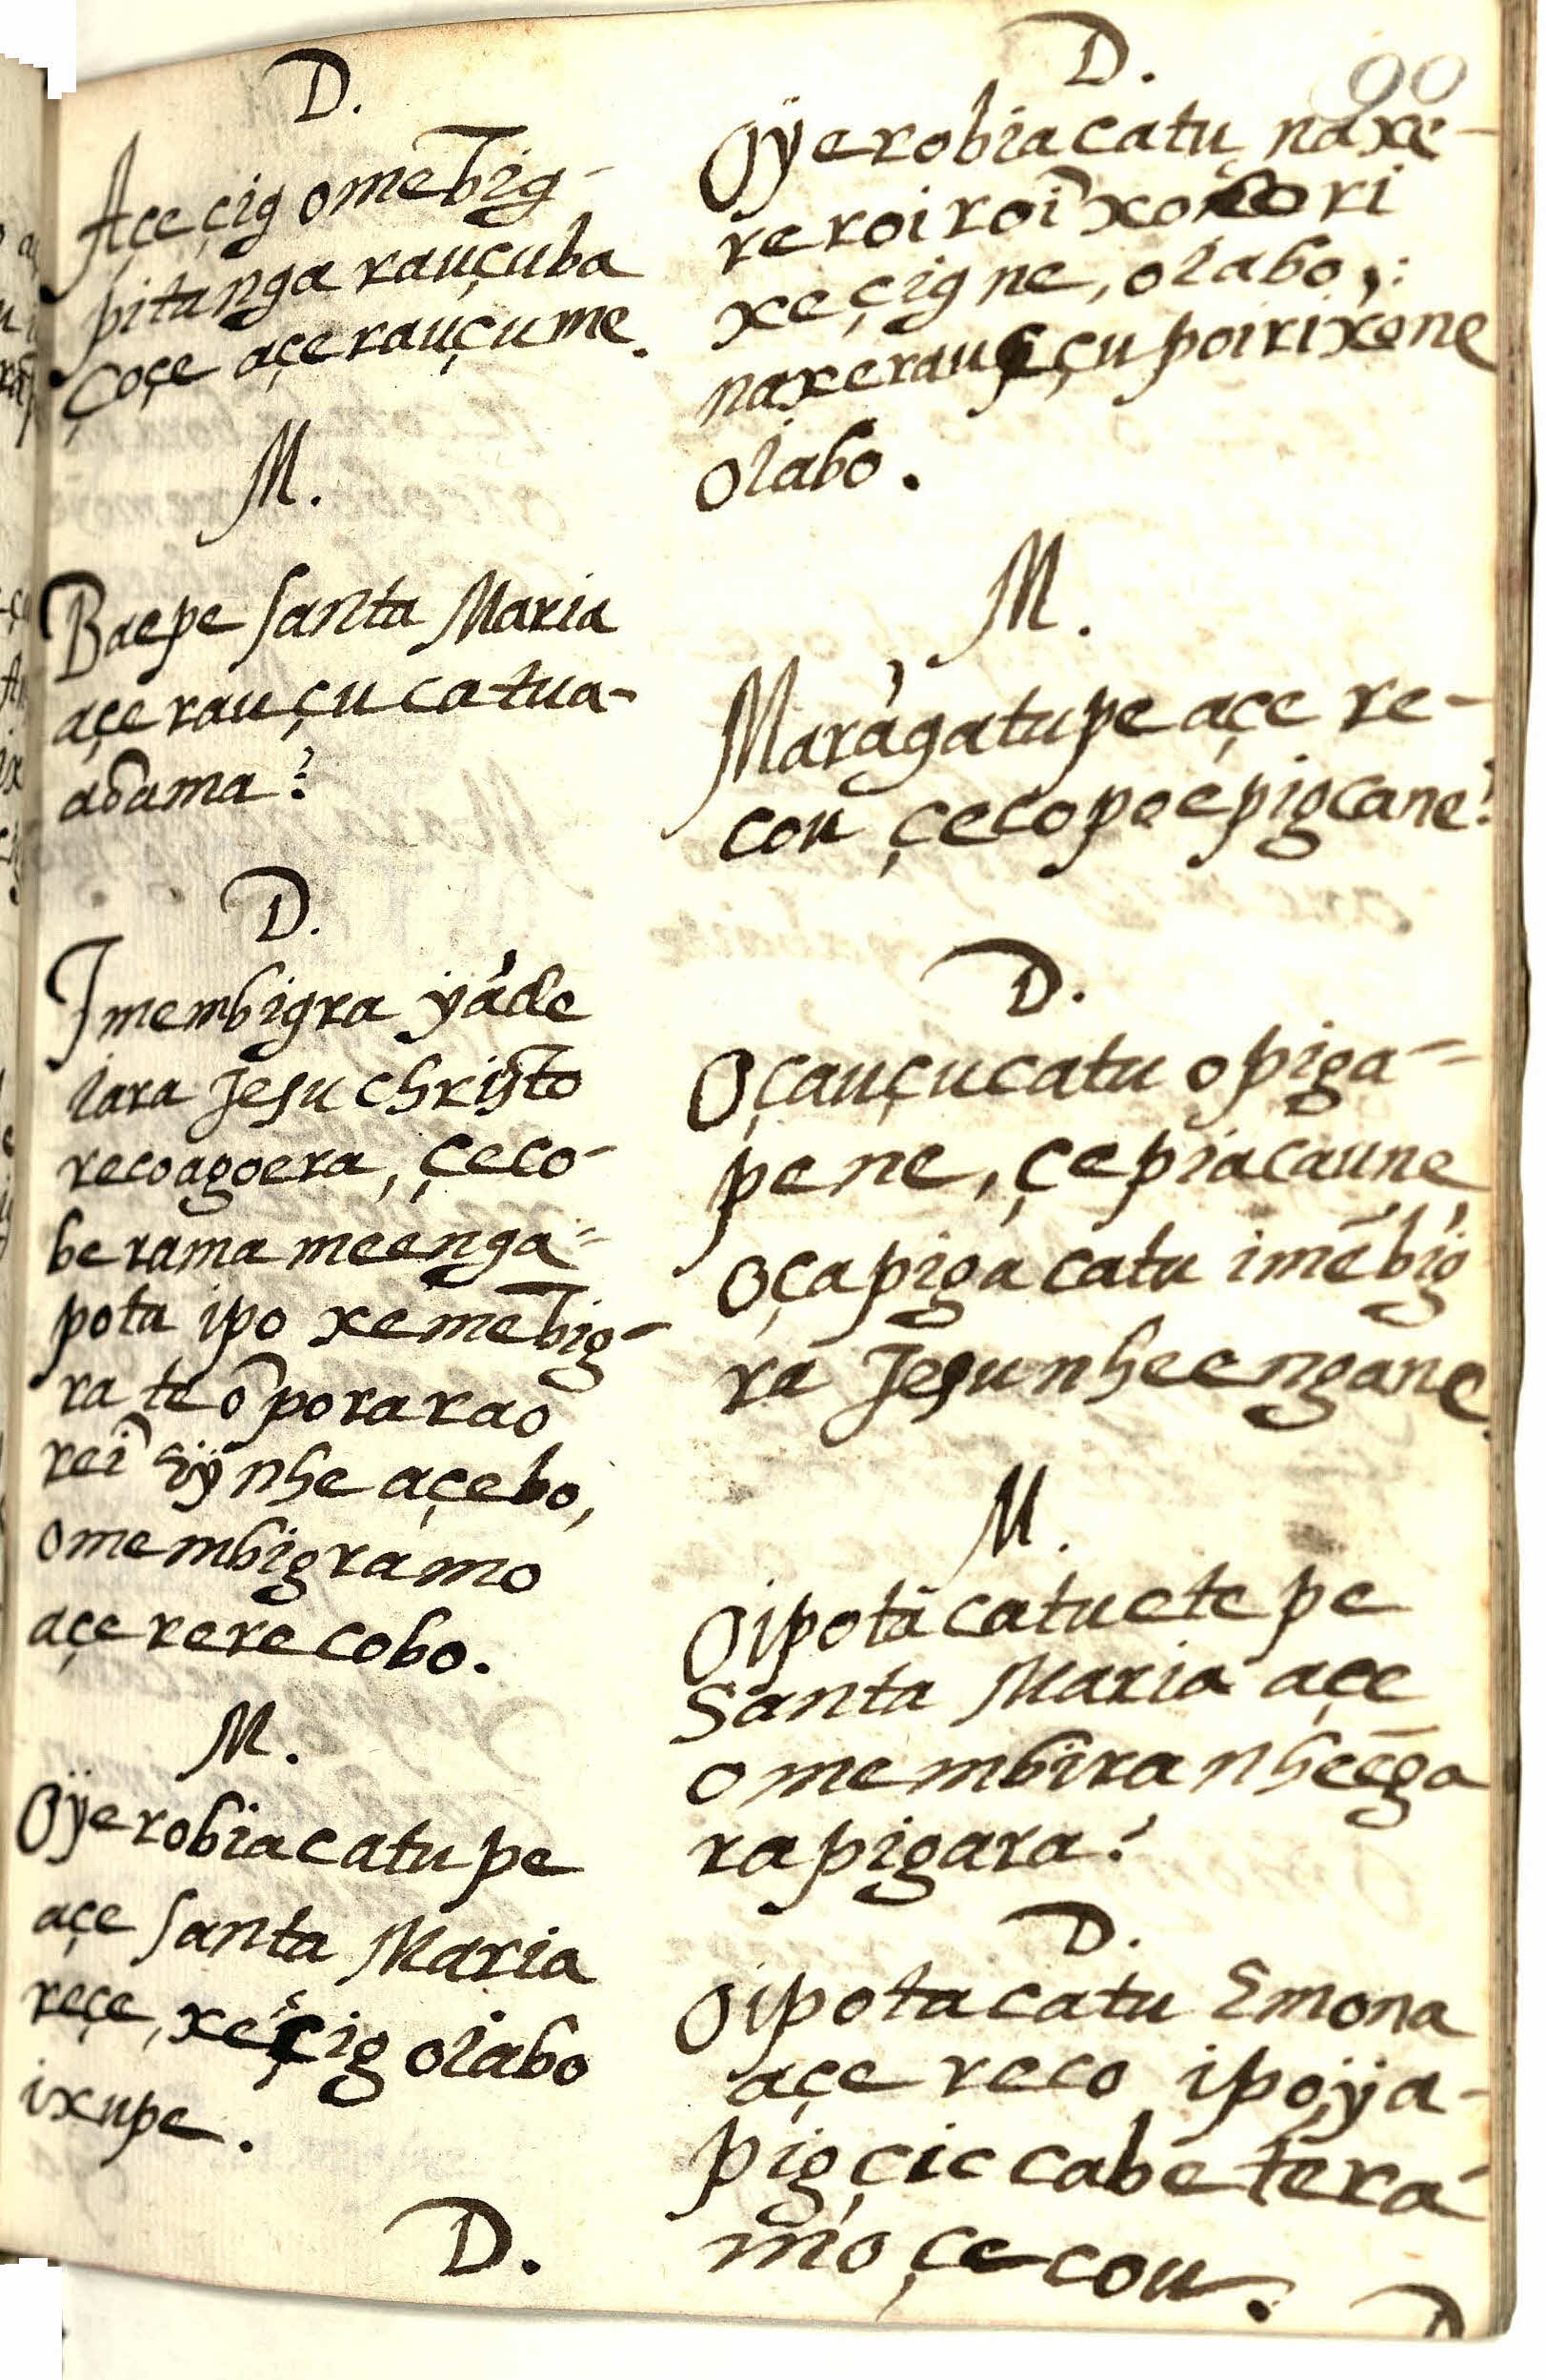 D.
Açe çig omẽbig-
pitanga rauçuba
çoçe açerauçume.
M.
Baepe santa Maria
açe rauçucatua-
aõama?
D.
Imembigra ÿáde
iara Jesu christo
recoagoera, çeco-
be rama meenga=
pota ipo xemẽbig-
ra teõ porarao
rei nhe açebo,
omembigramo
açe rerecobo.
M.
Oÿerobiacatupe
açe santa Maria
reçe, xeçig oiabo
ixupe.
D.
D. 90
Oÿerobiacatu, naxe-
reroiroĩxo ri
xeçigne, oiabo,:
naxerauçupoirixone
oiabo.
M.
Marãgatupe açe re-
cou çecopoepigcane?
D.
Oçauçucatu opiga=
pene, çepiacaune,
oçapigacatu imẽbig
ra Jesu nheengane.
M.
Oipotá catuetepe
Santa Maria açe
omembira nheẽga
rapigara?
D.
Oipotacatu Emona
açe reco ipoÿa-
pigçic cabeterá-
mo çecou.
D